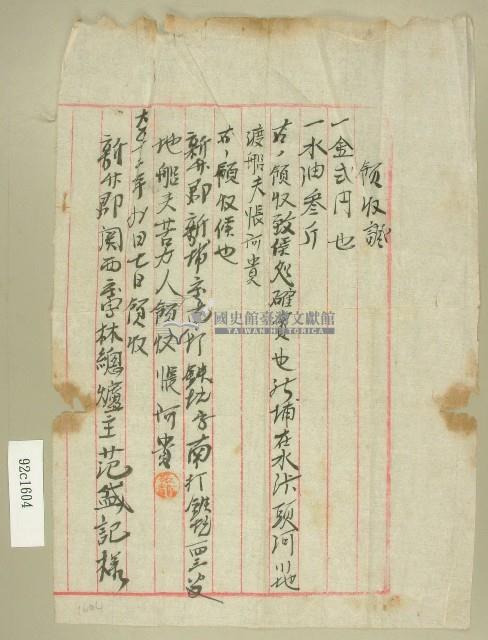 領收證
一金貳円也
一水油叁斤
右、領收致候処確實也 新埔庄水汴頭河岸地
渡船夫張阿貴
右、領收候也
新竹郡新埔庄打鉄坑字南打鉄坑四三
地船夫苦力人領收 張阿貴
大正十二年九月七日領收
新竹郡關西庄 林總爐主 范盛記樣
國史館臺灣文獻館
TAIWAN HISTORICA
92c1604
1604